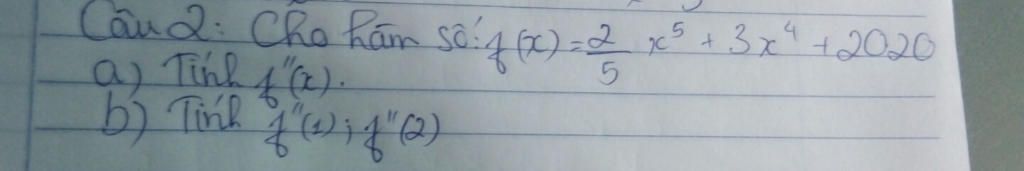 Câu 2: Cho hàm số: f(x) = 2/5 x⁵ + 3x⁴ + 2020
a) Tính f''(x).
b) Tính f''(1); f''(2)